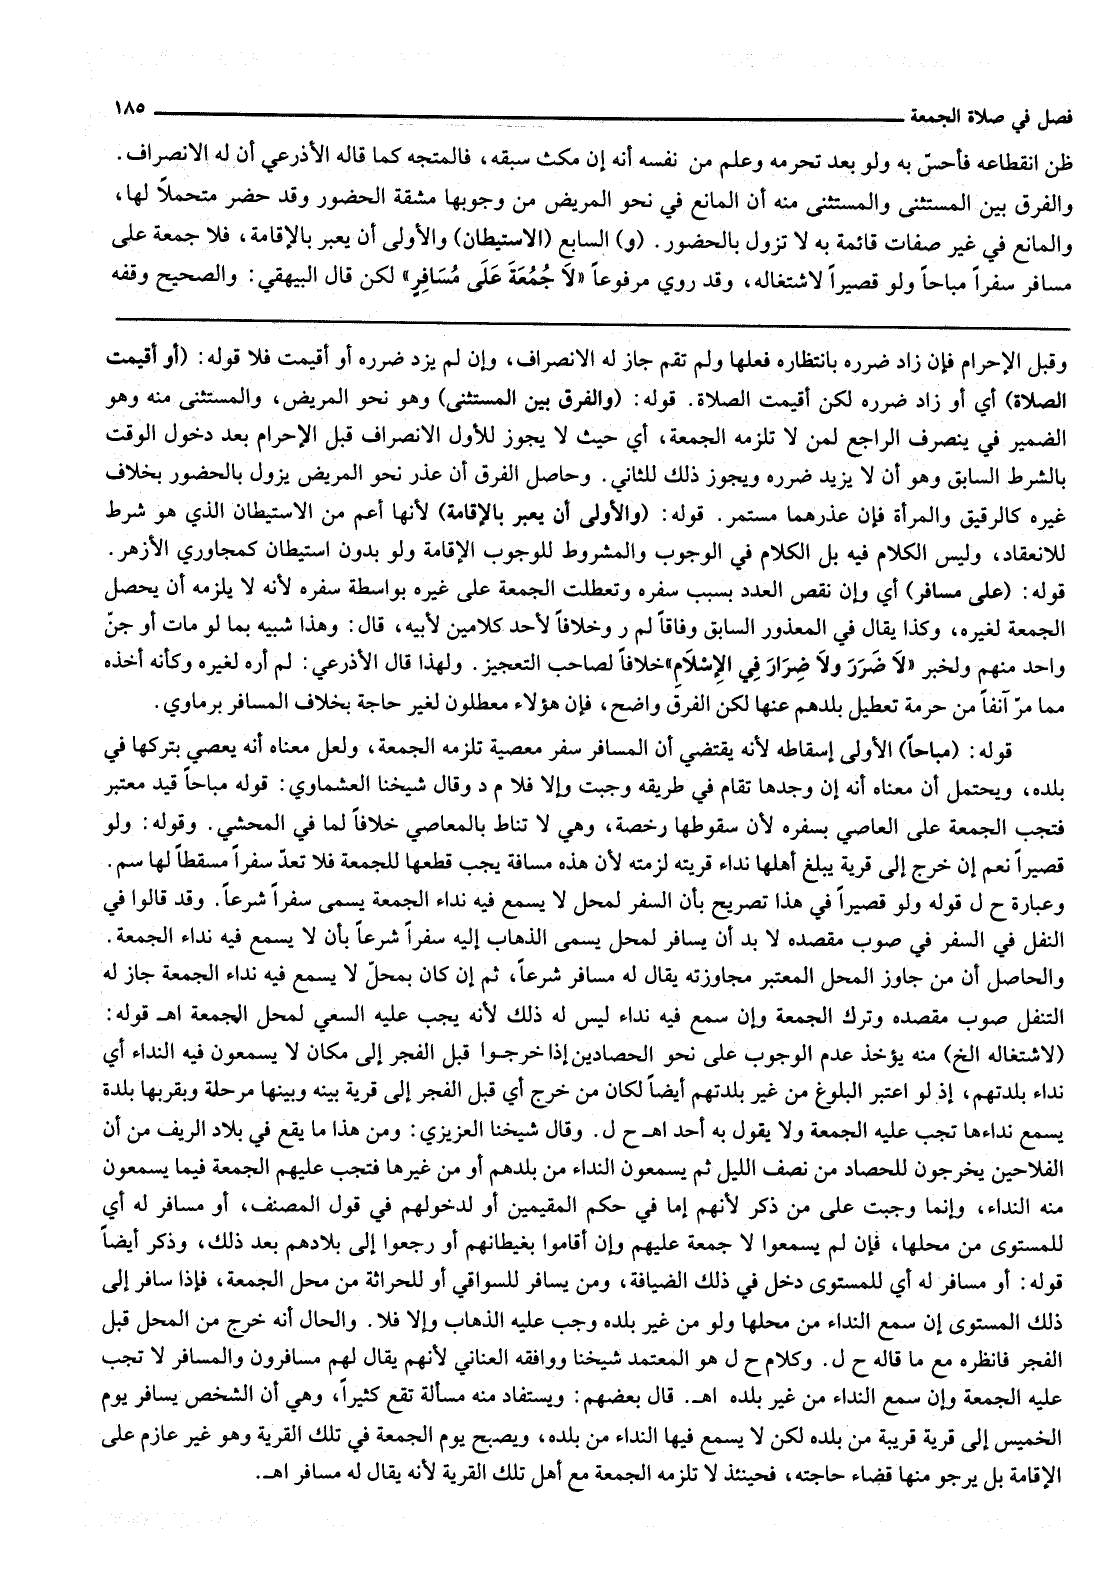 فصل في صلاة الجمعة ١٨٥
ظن انقطاعه فأحسّ به ولو بعد تحرمه وعلم من نفسه أنه إن مكث سبقه، فالمتجه كما قاله الأذرعي أن له الانصراف.
والفرق بين المستثنى والمستثنى منه أن المانع في نحو المريض من وجوبها مشقة الحضور وقد حضر متحملاً لها،
والمانع في غير صفات قائمة به لا تزول بالحضور. (و) السابع (الاستيطان) والأولى أن يعبر بالإقامة، فلا جمعة على
مسافر سفراً مباحاً ولو قصيراً لاشتغاله، وقد روي مرفوعاً «لاَ جُمُعَةَ عَلَى مُسَافِرٍ» لكن قال البيهقي: والصحيح وقفه
وقبل الإحرام فإن زاد ضرره بانتظاره فعلها ولم تقم جاز له الانصراف، وإن لم يزد ضرره أو أقيمت فلا قوله: (أو أقيمت
الصلاة) أي أو زاد ضرره لكن أقيمت الصلاة. قوله: (والفرق بين المستثنى) وهو نحو المريض، والمستثنى منه وهو
الضمير في ينصرف الراجع لمن لا تلزمه الجمعة، أي حيث لا يجوز للأول الانصراف قبل الإحرام بعد دخول الوقت
بالشرط السابق وهو أن لا يزيد ضرره ويجوز ذلك للثاني. وحاصل الفرق أن عذر نحو المريض يزول بالحضور بخلاف
غيره كالرقيق والمرأة فإن عذرهما مستمر. قوله: (والأولى أن يعبر بالإقامة) لأنها أعم من الاستيطان الذي هو شرط
للانعقاد، وليس الكلام فيه بل الكلام في الوجوب والمشروط للوجوب الإقامة ولو بدون استيطان كمجاوري الأزهر.
قوله: (على مسافر) أي وإن نقص العدد بسبب سفره وتعطلت الجمعة على غيره بواسطة سفره لأنه لا يلزمه أن يحصل
الجمعة لغيره، وكذا يقال في المعذور السابق وفاقاً لم ر وخلافاً لأحد كلامين لأبيه، قال: وهذا شبيه بما لو مات أو جنّ
واحد منهم ولخبر «لاَ ضَرَرَ ولاَ ضِرَارَ فِي الإِسْلاَمِ»خلافاً لصاحب التعجيز. ولهذا قال الأذرعي: لم أره لغيره وكأنه أخذه
مما مرّ آنفاً من حرمة تعطيل بلدهم عنها لكن الفرق واضح، فإن هؤلاء معطلون لغير حاجة بخلاف المسافر برماوي.
قوله: (مباحاً) الأولى إسقاطه لأنه يقتضي أن المسافر سفر معصية تلزمه الجمعة، ولعل معناه أنه يعصي بتركها في
بلده، ويحتمل أن معناه أنه إن وجدها تقام في طريقه وجبت وإلا فلا م د وقال شيخنا العشماوي: قوله مباحاً قيد معتبر
فتجب الجمعة على العاصي بسفره لأن سقوطها رخصة، وهي لا تناط بالمعاصي خلافاً لما في المحشي. وقوله: ولو
قصيراً نعم إن خرج إلى قرية يبلغ أهلها نداء قريته لزمته لأن هذه مسافة يجب قطعها للجمعة فلا تعدّ سفراً مسقطاً لها سم.
وعبارة ح ل قوله ولو قصيراً في هذا تصريح بأن السفر لمحل لا يسمع فيه نداء الجمعة يسمى سفراً شرعاً. وقد قالوا في
النفل في السفر في صوب مقصده لا بد أن يسافر لمحل يسمى الذهاب إليه سفراً شرعاً بأن لا يسمع فيه نداء الجمعة.
والحاصل أن من جاوز المحل المعتبر مجاوزته يقال له مسافر شرعاً، ثم إن كان بمحلّ لا يسمع فيه نداء الجمعة جاز له
التنفل صوب مقصده وترك الجمعة وإن سمع فيه نداء ليس له ذلك لأنه يجب عليه السعي لمحل الجمعة اهـ قوله:
(لاشتغاله الخ) منه يؤخذ عدم الوجوب على نحو الحصادين إذا خرجوا قبل الفجر إلى مكان لا يسمعون فيه النداء أي
نداء بلدتهم، إذ لو اعتبر البلوغ من غير بلدتهم أيضاً لكان من خرج أي قبل الفجر إلى قرية بينه وبينها مرحلة وبقربها بلدة
يسمع نداءها تجب عليه الجمعة ولا يقول به أحد اهـ ح ل. وقال شيخنا العزيزي: ومن هذا ما يقع في بلاد الريف من أن
الفلاحين يخرجون للحصاد من نصف الليل ثم يسمعون النداء من بلدهم أو من غيرها فتجب عليهم الجمعة فيما يسمعون
منه النداء، وإنما وجبت على من ذكر لأنهم إما في حكم المقيمين أو لدخولهم في قول المصنف، أو مسافر له أي
للمستوى من محلها، فإن لم يسمعوا لا جمعة عليهم وإن أقاموا بغيطانهم أو رجعوا إلى بلادهم بعد ذلك، وذكر أيضاً
قوله: أو مسافر له أي للمستوى دخل في ذلك الضيافة، ومن يسافر للسواقي أو للحراثة من محل الجمعة، فإذا سافر إلى
ذلك المستوى إن سمع النداء من محلها ولو من غير بلده وجب عليه الذهاب وإلا فلا. والحال أنه خرج من المحل قبل
الفجر فانظره مع ما قاله ح ل. وكلام ح ل هو المعتمد شيخنا ووافقه العناني لأنهم يقال لهم مسافرون والمسافر لا تجب
عليه الجمعة وإن سمع النداء من غير بلده اهـ. قال بعضهم: ويستفاد منه مسألة تقع كثيراً، وهي أن الشخص يسافر يوم
الخميس إلى قرية قريبة من بلده لكن لا يسمع فيها النداء من بلده، ويصبح يوم الجمعة في تلك القرية وهو غير عازم على
الإقامة بل يرجو منها قضاء حاجته، فحينئذ لا تلزمه الجمعة مع أهل تلك القرية لأنه يقال له مسافر اهـ.